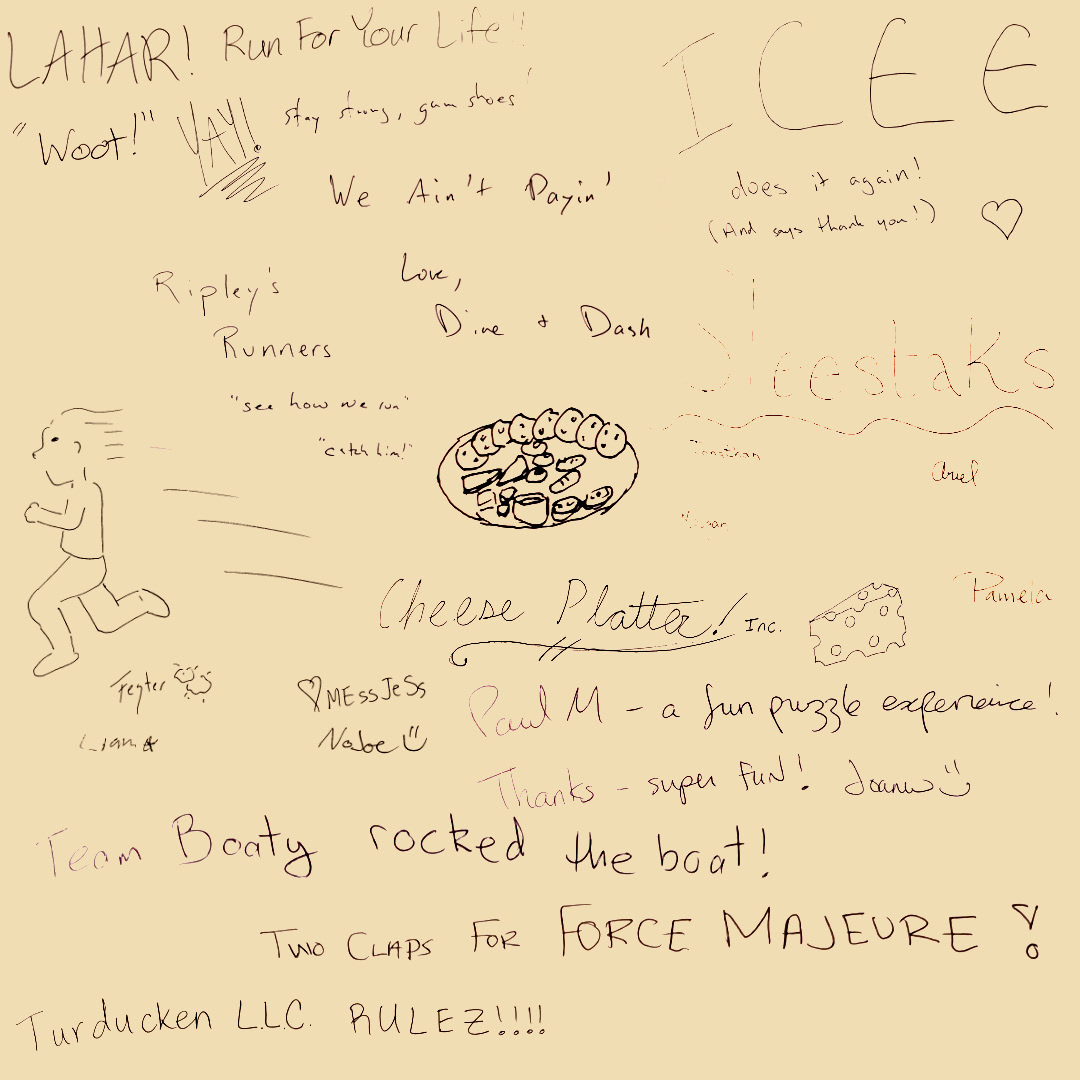 LAHAR! Run For Your Life!!
"Woot!" YAY! stay strong, gum shoes!
We Ain't Payin'
Love,
Dine + Dash
ICEE
does it again!
(And says thank you!)
Ripley's
Runners
"see how we run"
"catch him!"
Sleestaks
Jonathan
Ariel
Megan
Pamela
Cheese Platter! Inc.
MessJess
Nabe
Liam
Paul M - a fun puzzle experience!
Thanks - super fun! Joanne
Team Boaty rocked the boat!
TWO CLAPS FOR FORCE MAJEURE!
Turducken L.L.C. RULEZ!!!!